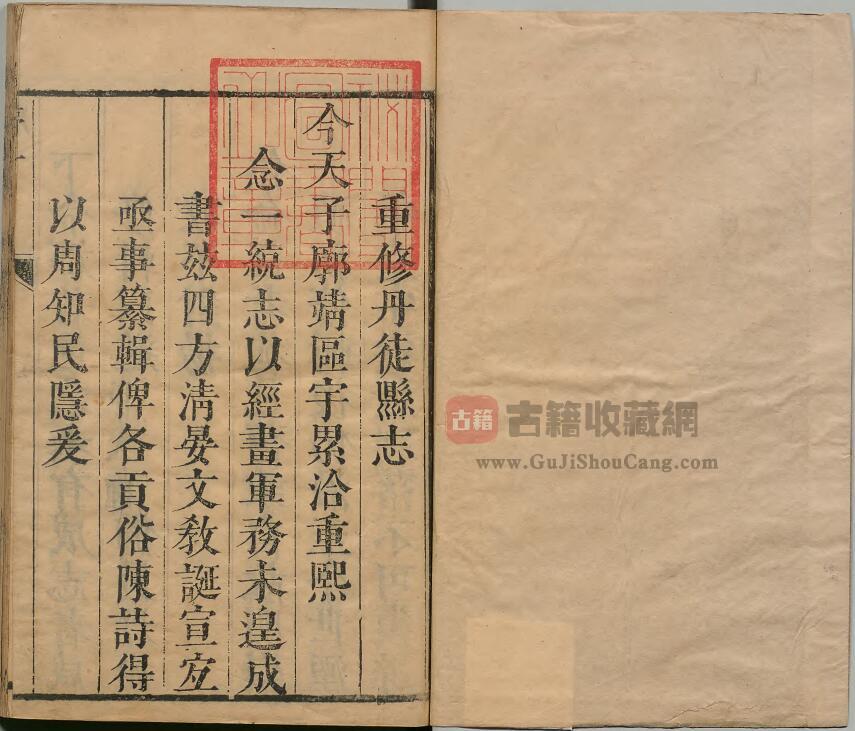 重修丹徒縣志
今天子廓靖區宇累洽重熙
念一統志以經畫軍務未遑成
書兹四方清晏文教誕宣宐
亟事纂輯俾各貢俗陳詩得
以周知民隱爰
古籍
古籍收藏網
www.GuJiShouCang.com